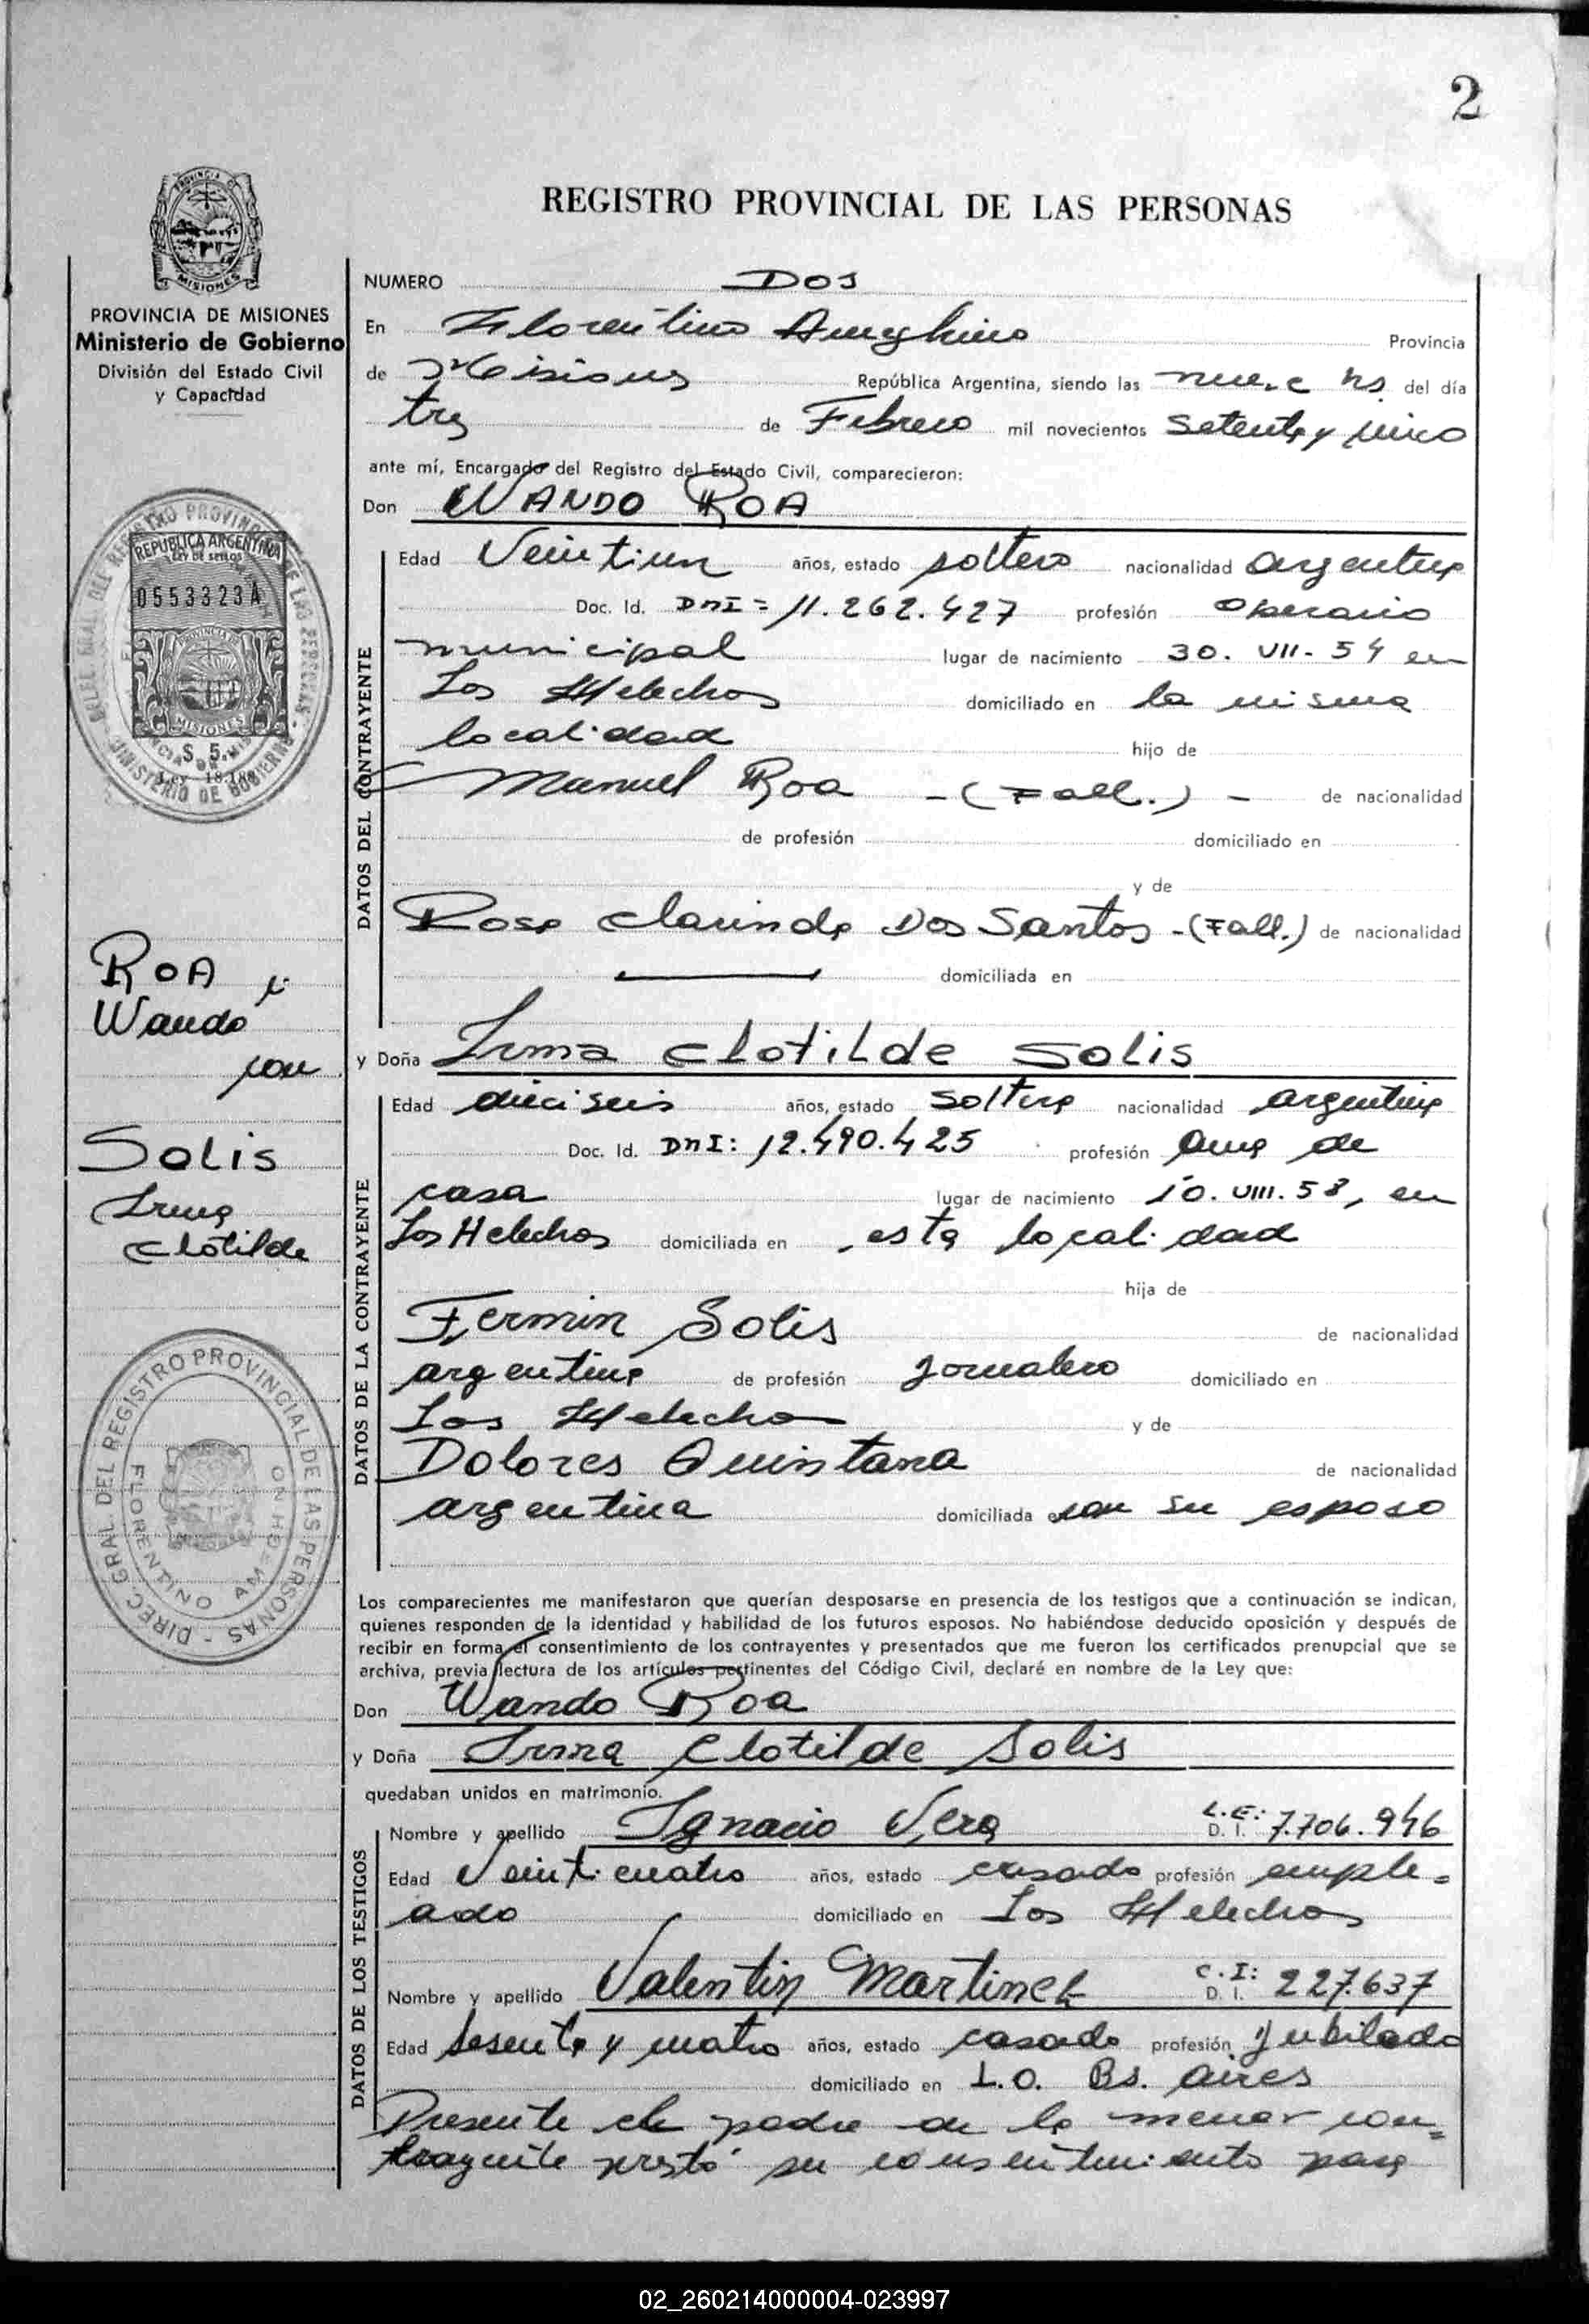 2
REGISTRO PROVINCIAL DE LAS PERSONAS
MISIONES
PROVINCIA DE MISIONES
Ministerio de Gobierno
División del Estado Civil
y Capacidad
REPUBLICA ARGENTINA
LEY DE SELLOS
0553323A
MISIONES
$ 5.
Ley 18.188
ROA
Wando
con
SOLIS
Irma
Clotilde
DIREC. GRAL. DEL REGISTRO PROVINCIAL DE LAS PERSONAS -
FLORENTINO AMEGHINO
NUMERO DOS
En Florentino Ameghino Provincia
de Misiones República Argentina, siendo las nueve hs. del día
tres de Febrero mil novecientos Setenta y cinco
ante mí, Encargado del Registro del Estado Civil, comparecieron:
Don WANDO ROA
DATOS DEL CONTRAYENTE
Edad Veintiun años, estado soltero nacionalidad argentina
Doc. Id. DNI = 11.262.427 profesión Operario
municipal lugar de nacimiento 30. VII-54 en
Los Helechos domiciliado en la misma
localidad hijo de
Manuel Roa - (Fall.) - de nacionalidad
de profesión domiciliado en
y de
Rosa Clarinda Dos Santos - (Fall.) de nacionalidad
domiciliada en
y Doña Irma Clotilde Solis
DATOS DE LA CONTRAYENTE
Edad dieciseis años, estado Soltera nacionalidad argentina
Doc. Id. DNI: 12.490.425 profesión Ama de
casa lugar de nacimiento 10. VIII. 58, en
Los Helechos domiciliada en esta localidad
hija de
Fermin Solis de nacionalidad
argentina de profesión Jornalero domiciliado en
Los Helechos y de
Dolores Quintana de nacionalidad
argentina domiciliada con su esposo
Los comparecientes me manifestaron que querían desposarse en presencia de los testigos que a continuación se indican,
quienes responden de la identidad y habilidad de los futuros esposos. No habiéndose deducido oposición y después de
recibir en forma el consentimiento de los contrayentes y presentados que me fueron los certificados prenupcial que se
archiva, previa lectura de los artículos pertinentes del Código Civil, declaré en nombre de la Ley que:
Don Wando Roa
y Doña Irma Clotilde Solis
quedaban unidos en matrimonio.
DATOS DE LOS TESTIGOS
Nombre y apellido Ignacio Vera L.E: D. I. 7.706.946
Edad Veinticuatro años, estado casado profesión emple-
ado domiciliado en Los Helechos
Nombre y apellido Valentin Martinez C.I: D. I. 227.637
Edad Sesenta y cuatro años, estado casado profesión Jubilado
domiciliado en L.O. Bs. Aires
Presente el padre de la menor con=
trayente prestó su consentimiento para
02_260214000004-023997